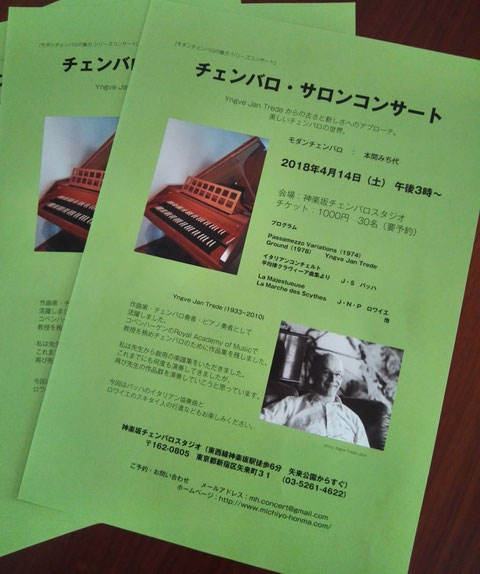 [モダンチェンバロの魅力 シリーズコンサート]
チェンバロ・サロンコンサート
Yngve Jan Trede からの古きと新しさへのアプローチ。
美しいチェンバロの世界。
モダンチェンバロ ： 本間みち代
2018年4月14日（土） 午後3時～
会場：神楽坂チェンバロスタジオ
チケット：1000円 30名（要予約）
プログラム
Passamezzo Variations（1974）
Ground（1978） Yngve Jan Trede
イタリアンコンチェルト
平均律クラヴィーア曲集より J・S バッハ
La Majestueuse
La Marche des Scythes J・N・P ロワイエ
他
Yngve Jan Trede (1933~2010)
作曲家、チェンバロ奏者・ピアノ奏者として
活躍しました。
コペンハーゲンのRoyal Academy of Musicで
教授を務めチェンバロのために作品集を残しました。
私は先生から数冊の楽譜集をいただきました。
これまでにも何度も演奏してきましたが、
再び先生の作品群を演奏していこうと思っています。
今回はバッハのイタリアン協奏曲と
ロワイエのスキタイ人の行進などもお楽しみください。
神楽坂チェンバロスタジオ（東西線神楽坂駅徒歩6分 矢来公園からすぐ）
〒162-0805 東京都新宿区矢来町31 （03-5261-4622）
ご予約・お問い合わせ メールアドレス：mh.concert@gmail.com
ホームページ：http://www.michiyo-honma.com/
[モダンチェンバロの魅力 シリーズコンサート]
チェンバロ・
Yngve Jan
作曲家・チ
活躍しまし
コペンハー
教授を務め
私は先生
これまで
再び先生
今回は
ロワイ